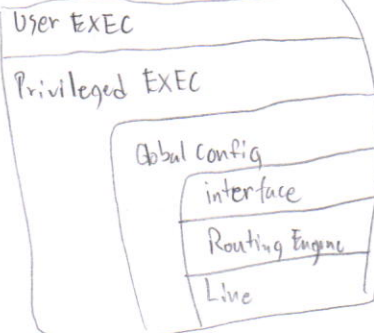 User EXEC
Privileged EXEC
Global Config
interface
Routing Engine
Line